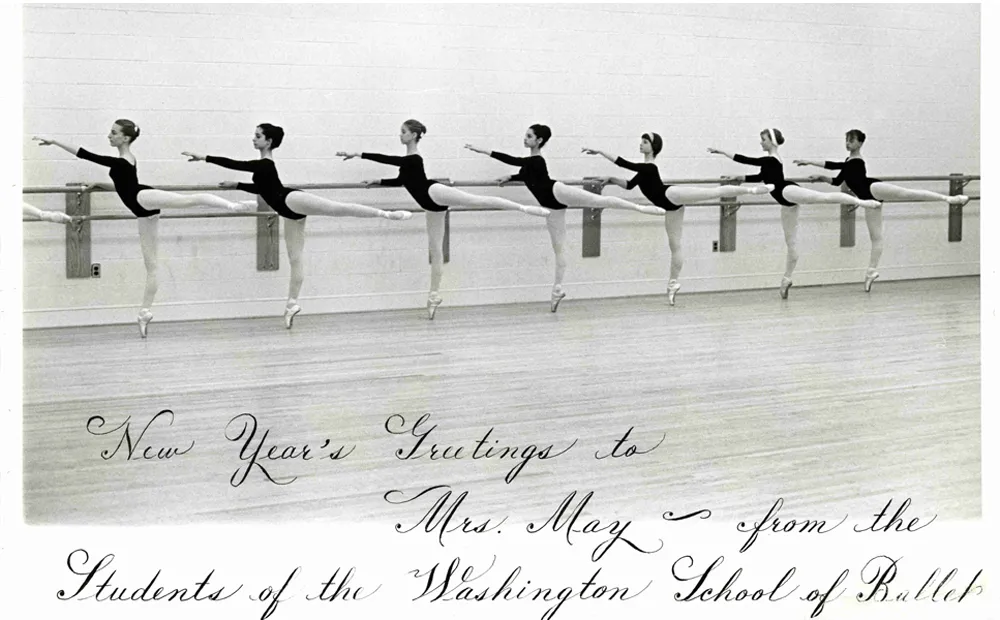 New Year's Greetings to
Mrs. May ~ from the
Students of the Washington School of Ballet